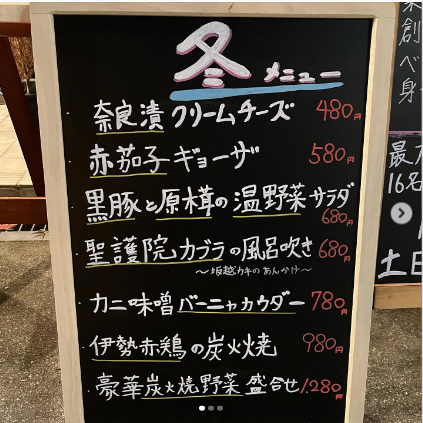 冬 メニュー
・奈良漬クリームチーズ 480円
・赤茄子ギョーザ 580円
・黒豚と原椎茸の温野菜サラダ 680円
・聖護院カブラの風呂吹き 680円
〜坂越カキのあんかけ〜
・カニ味噌バーニャカウダー 780円
・伊勢赤鶏の炭火焼 980円
・豪華炭火焼野菜盛合せ 1,280円
創
べ
身
16名
土日